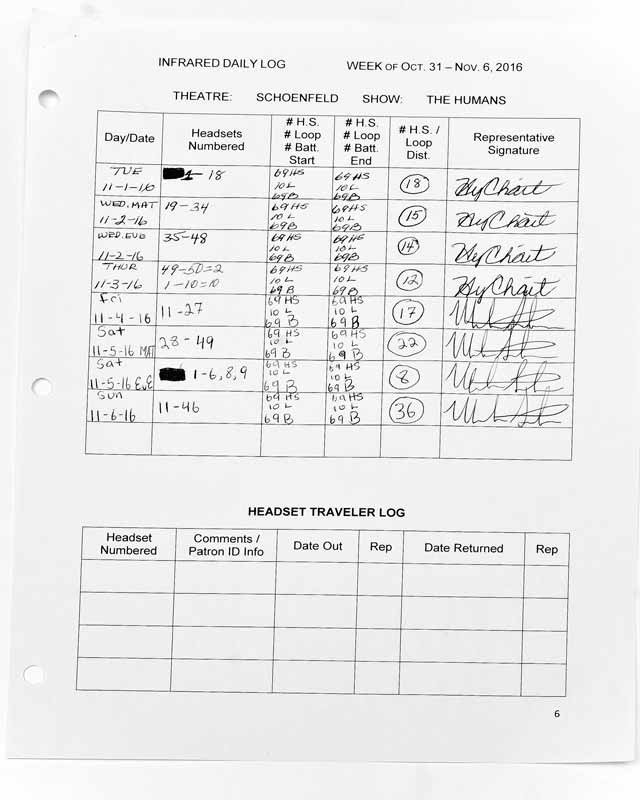 INFRARED DAILY LOG WEEK OF OCT. 31 – NOV. 6, 2016
THEATRE: SCHOENFELD SHOW: THE HUMANS
Day/Date
Headsets
Numbered
# H.S.
# Loop
# Batt.
Start
# H.S.
# Loop
# Batt.
End
# H.S. /
Loop
Dist.
Representative
Signature
TUE
11-1-16
1-18
69HS
10L
69B
69HS
10L
69B
18
Hy Chait
WED. MAT
11-2-16
19-34
69HS
10L
69B
69HS
10L
69B
15
Hy Chait
WED. EVE
11-2-16
35-48
69HS
10L
69B
69HS
10L
69B
14
Hy Chait
THUR
11-3-16
49-50=2
1-10=10
69HS
10L
69B
69HS
10L
69B
12
Hy Chait
Fri
11-4-16
11-27
69HS
10L
69B
69HS
10L
69B
17
Sat
11-5-16 MAT
28-49
69HS
10L
69B
69HS
10L
69B
22
Sat
11-5-16 EvE
1-6,8,9
69HS
10L
69B
69HS
10L
69B
8
Sun
11-6-16
11-46
69HS
10L
69B
69HS
10L
69B
36
HEADSET TRAVELER LOG
Headset
Numbered
Comments /
Patron ID Info
Date Out
Rep
Date Returned
Rep
6